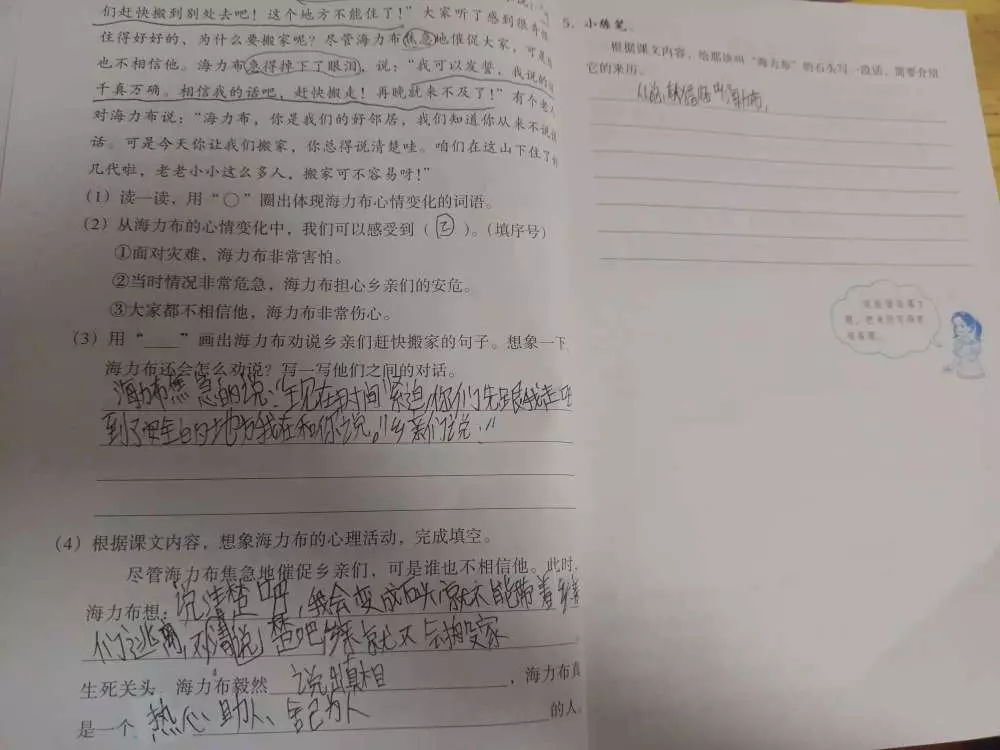 们赶快搬到别处去吧！这个地方不能住了！”大家听了感到很奇怪
住得好好的，为什么要搬家呢？尽管海力布焦急地催促大家，可是
也不相信他。海力布急得掉下了眼泪，说：“我可以发誓，我说的
千真万确。相信我的话吧，赶快搬走！再晚就来不及了！”有个老人
对海力布说：“海力布，你是我们的好邻居，我们知道你从来不说
话。可是今天你让我们搬家，你总得说清楚哇。咱们在这山下住了
几代啦，老老小小这么多人，搬家可不容易呀！”
（1）读一读，用“○”圈出体现海力布心情变化的词语。
（2）从海力布的心情变化中，我们可以感受到（ ② ）。（填序号）
①面对灾难，海力布非常害怕。
②当时情况非常危急，海力布担心乡亲们的安危。
③大家都不相信他，海力布非常伤心。
（3）用“____”画出海力布劝说乡亲们赶快搬家的句子。想象一下
海力布还会怎么劝说？写一写他们之间的对话。
海力布焦急的说：“现在时间紧迫，你们先跟我走
到了安全的地方我在和你说。”乡亲们说：“
（4）根据课文内容，想象海力布的心理活动，完成填空。
尽管海力布焦急地催促乡亲们，可是谁也不相信他。此时，
海力布想：说清楚吧，我会变成石头，就不能带着乡亲
们逃离，不清说楚吧乡亲就不会搬家
生死关头，海力布毅然 说出真相 ，海力布真
是一个 热心、助人、舍己为人 的人
5. 小练笔。
根据课文内容，给那块叫“海力布”的石头写一段话，简要介绍
它的来历。
从前，